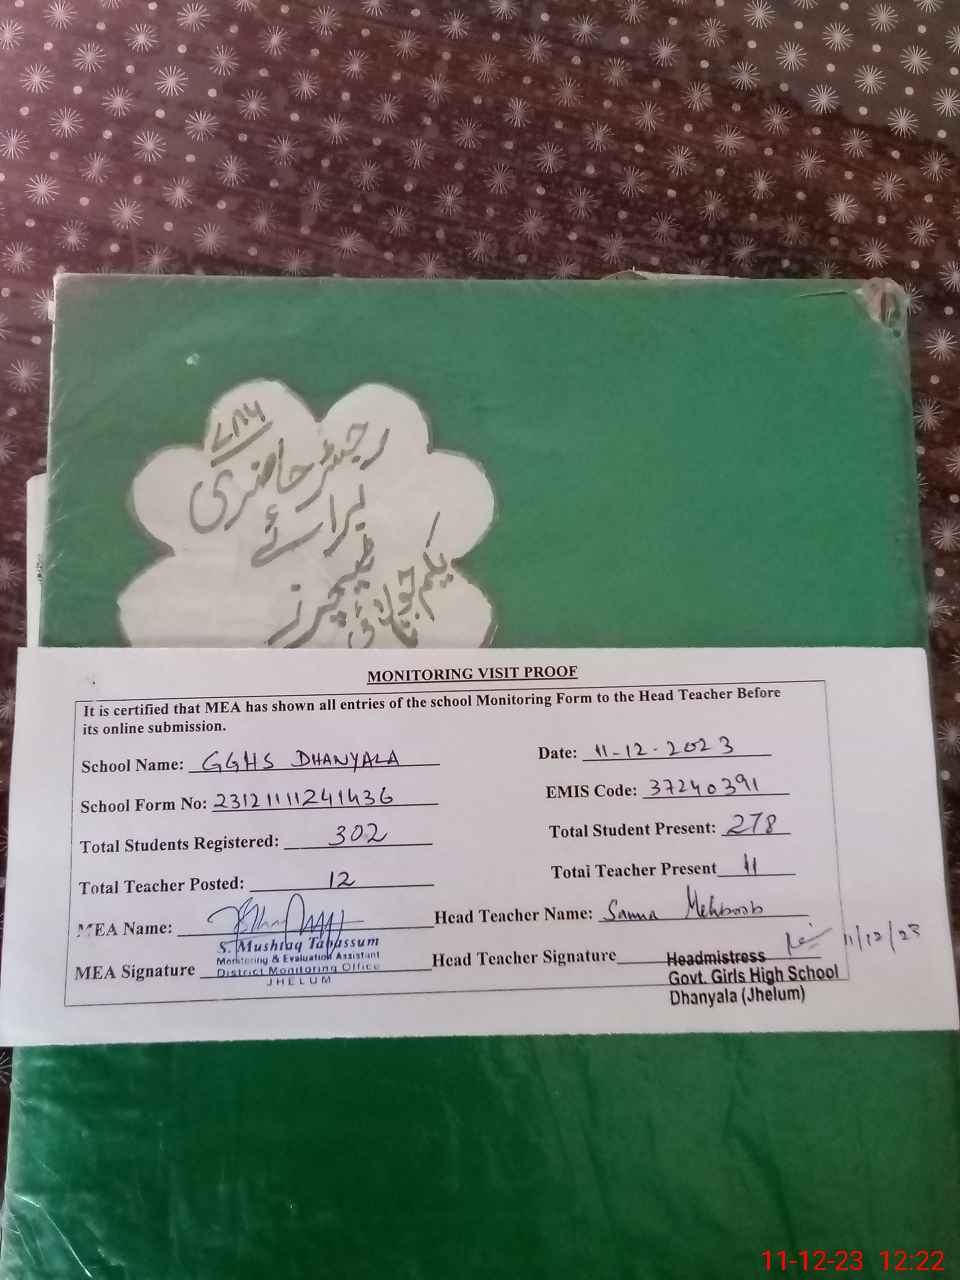 ۷۸۶
رجسٹر حاضری
برائے
ٹیچرز
یکم جولائی
MONITORING VISIT PROOF
It is certified that MEA has shown all entries of the school Monitoring Form to the Head Teacher Before
its online submission.
School Name: GGHS DHANYALA Date: 11-12-2023
School Form No: 23121111241436 EMIS Code: 37240391
Total Students Registered: 302 Total Student Present: 278
Total Teacher Posted: 12 Total Teacher Present 11
MEA Name: Head Teacher Name: Samra Mehboob
S. Mushtaq Tabassum
Monitoring & Evaluation Assistant
MEA Signature District Monitoring Office Head Teacher Signature Headmistress 11/12/23
JHELUM
Govt. Girls High School
Dhanyala (Jhelum)
11-12-23 12:22